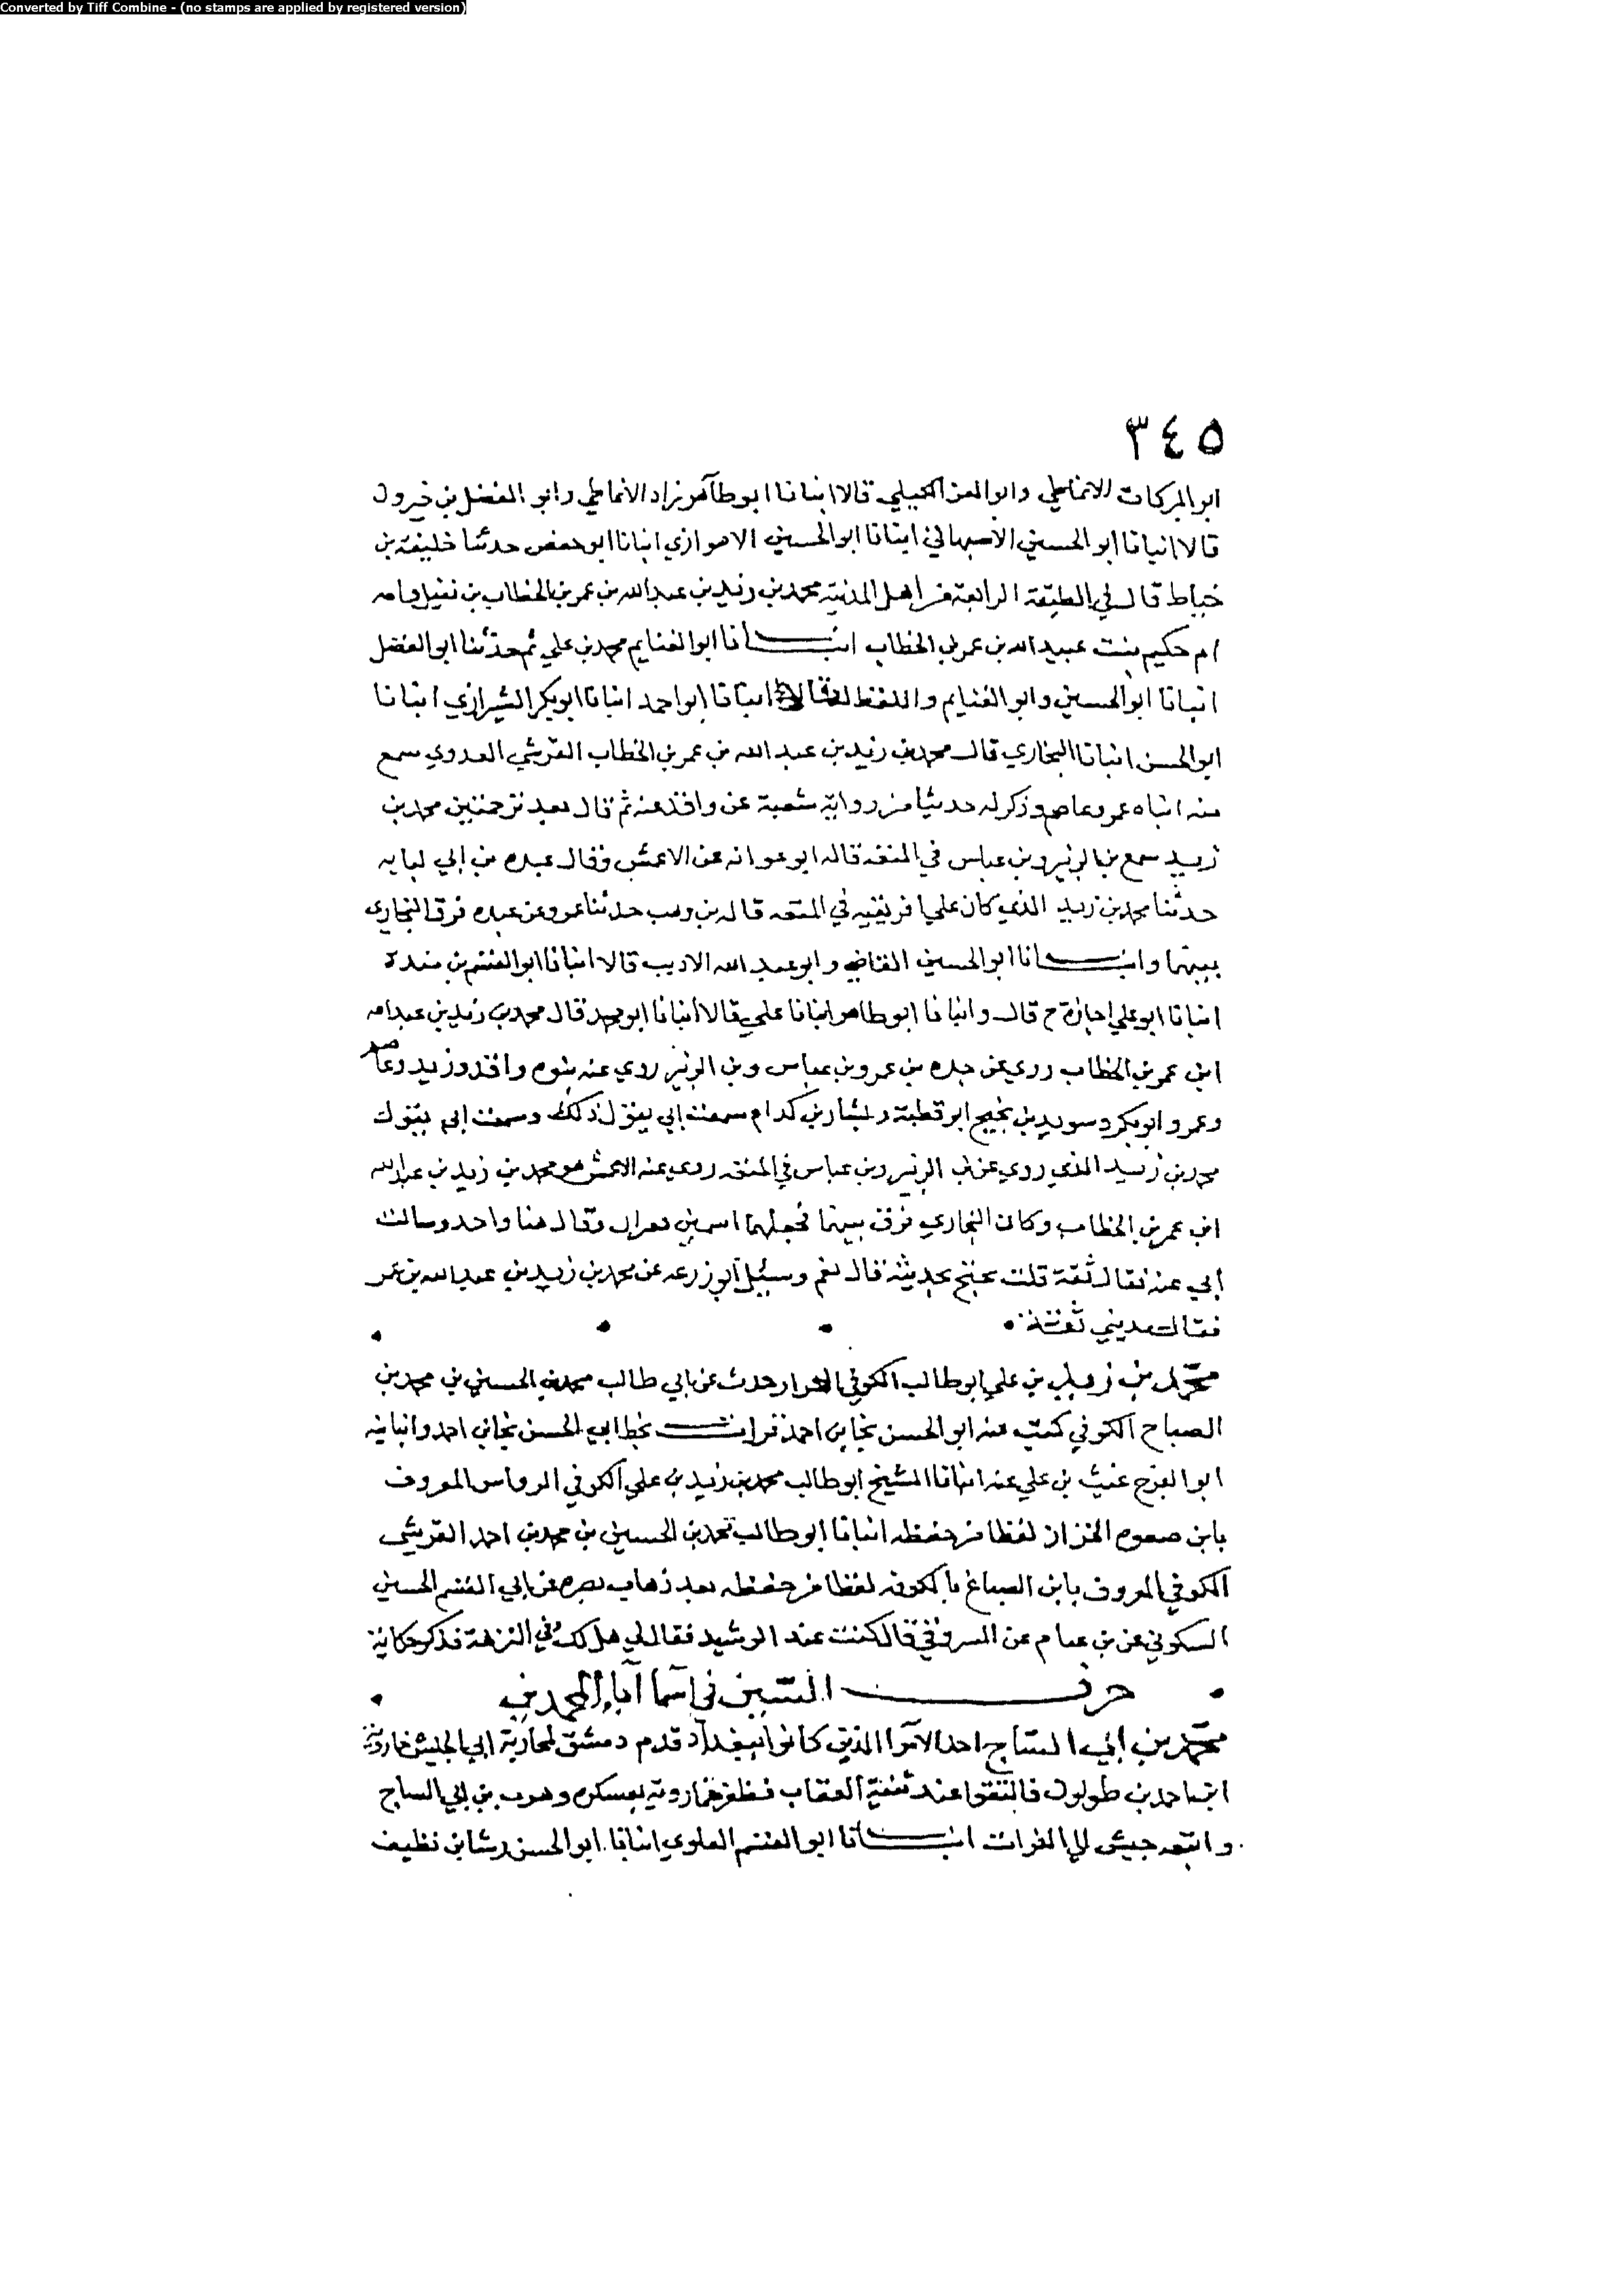 Converted by Tiff Combine - (no stamps are applied by registered version)
٣٤٥
ابو البركات الانماطي وابو العز الكيلي قالا انبانا ابو طاهر زاد الانماطي وابو الفضل بن خيرون
قالا انبانا ابو الحسين الاصبهاني انبانا ابو الحسين الاهوازي انبانا ابو حفص حدثنا خليفة بن
خياط قال في الطبقة الرابعة من اهل المدينة محمد بن زيد بن عبد الله بن عمر بن الخطاب بن نفيل وامه
ام حكيم بنت عبيد الله بن عمر بن الخطاب انبـــانا ابو الغنايم محمد بن علي ثم حدثنا ابو الفضل
انبانا ابو الحسين وابو الغنايم واللفظ له قالا انبانا ابو احمد انبانا ابو بكر الشيرازي انبانا
ابو الحسن انبانا البخاري قال محمد بن زيد بن عبد الله بن عمر بن الخطاب القرشي العدوي سمع
منه ابناه عمر وعاصم وذكر له حديثا من رواية شعبة عن واقد عنه ثم قال بعد ترجمتين محمد بن
زيد سمع بن الزبير وبن عباس في المتعه قاله ابو عوانه عن الاعمش وقال عبده بن ابي لبابه
حدثنا محمد بن زيد الذي كان علي افريقيه في المتعه قاله بن وهب حدثنا عمرو عن عبده فرق البخاري
بينهما وانبـــانا ابو الحسين القاضي وابو عبد الله الاديب قالا انبانا ابو القسم بن مندة
انبانا ابو علي اجازة ح قال وانبانا ابو طاهر انبانا علي قالا انبانا ابو محمد قال محمد بن زيد بن عبد الله
ابن عمر بن الخطاب روي عن جده بن عمر وبن عباس وبن الزبير روي عنه بنوه واقد وزيد وعاصم
وعمر وابو بكر وسويد بن نجيح ابو قطبة وبشار بن كدام سمعت ابي يقول ذلك وسمعت ابي يقول
محمد بن زيد الذي روي عن بن الزبير وبن عباس في المتعه روي عنه الاعمش هو محمد بن زيد بن عبد الله
ابن عمر بن الخطاب وكان البخاري فرق بينهما فجعلهما اسمين وقال هما واحد وسالت
ابي عنه فقال ثقة قلت يحتج بحديثه قال نعم وسئل ابو زرعه عن محمد بن زيد بن عبد الله بن عمر
فقال مديني ثقة
محمد بن زيد بن علي ابو طالب الكوفي الخزاز حدث عن ابي طالب محمد بن الحسين بن محمد بن
الصباح الكوفي كتب عنه ابو الحسن نجا بن احمد قرات بخط ابي الحسن نجا بن احمد وانبانيه
ابو الفرج غيث بن علي عنه انبانا الشيخ ابو طالب محمد بن زيد بن علي الكوفي الرواس المعروف
بابن صعوه الخزاز لفظا من حفظه انبانا ابو طالب محمد بن الحسين بن محمد بن احمد القرشي
الكوفي المعروف بابن الصباغ بالكوفه لفظا من حفظه بعد ذهاب بصره عن ابي القسم الحسين
السكوني عن بن عمام عن المسروقي قال كنت عند الرشيد فقال لي هل لك في النزهة فذكر حكاية
حرف السين في اسما آباء المحمدين
محمد بن ابي الساج احد الامرا الذين كانوا ببغداد قدم دمشق لمحاربة ابي الجيش خمارويه
ابن احمد بن طولون فالتقوا عند ثنية العقاب فظفر خمارويه بعسكره وهرب بن ابي الساج
واتبعه جيش الي الفرات انبـــانا ابو القسم العلوي انبانا ابو الحسن رشا بن نظيف